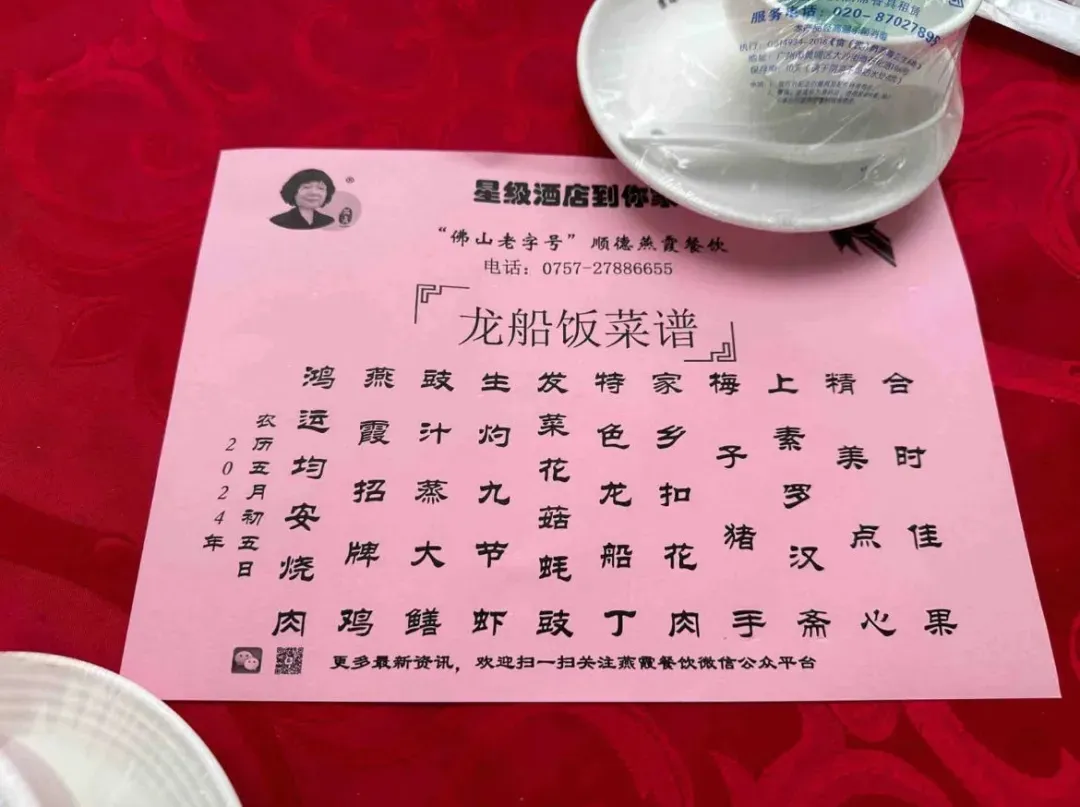 服务电话：020-87027899
星级酒店到你家
“佛山老字号”顺德燕霞餐饮
电话：0757-27886655
龙船饭菜谱
鸿运均安烧肉
燕霞招牌鸡
豉汁蒸大鳝
生灼九节虾
发菜花菇蚝豉
特色龙船丁
家乡扣花肉
梅子猪手
上素罗汉斋
精美点心
合时佳果
农历五月初五日
2024年
更多最新资讯，欢迎扫一扫关注燕霞餐饮微信公众平台